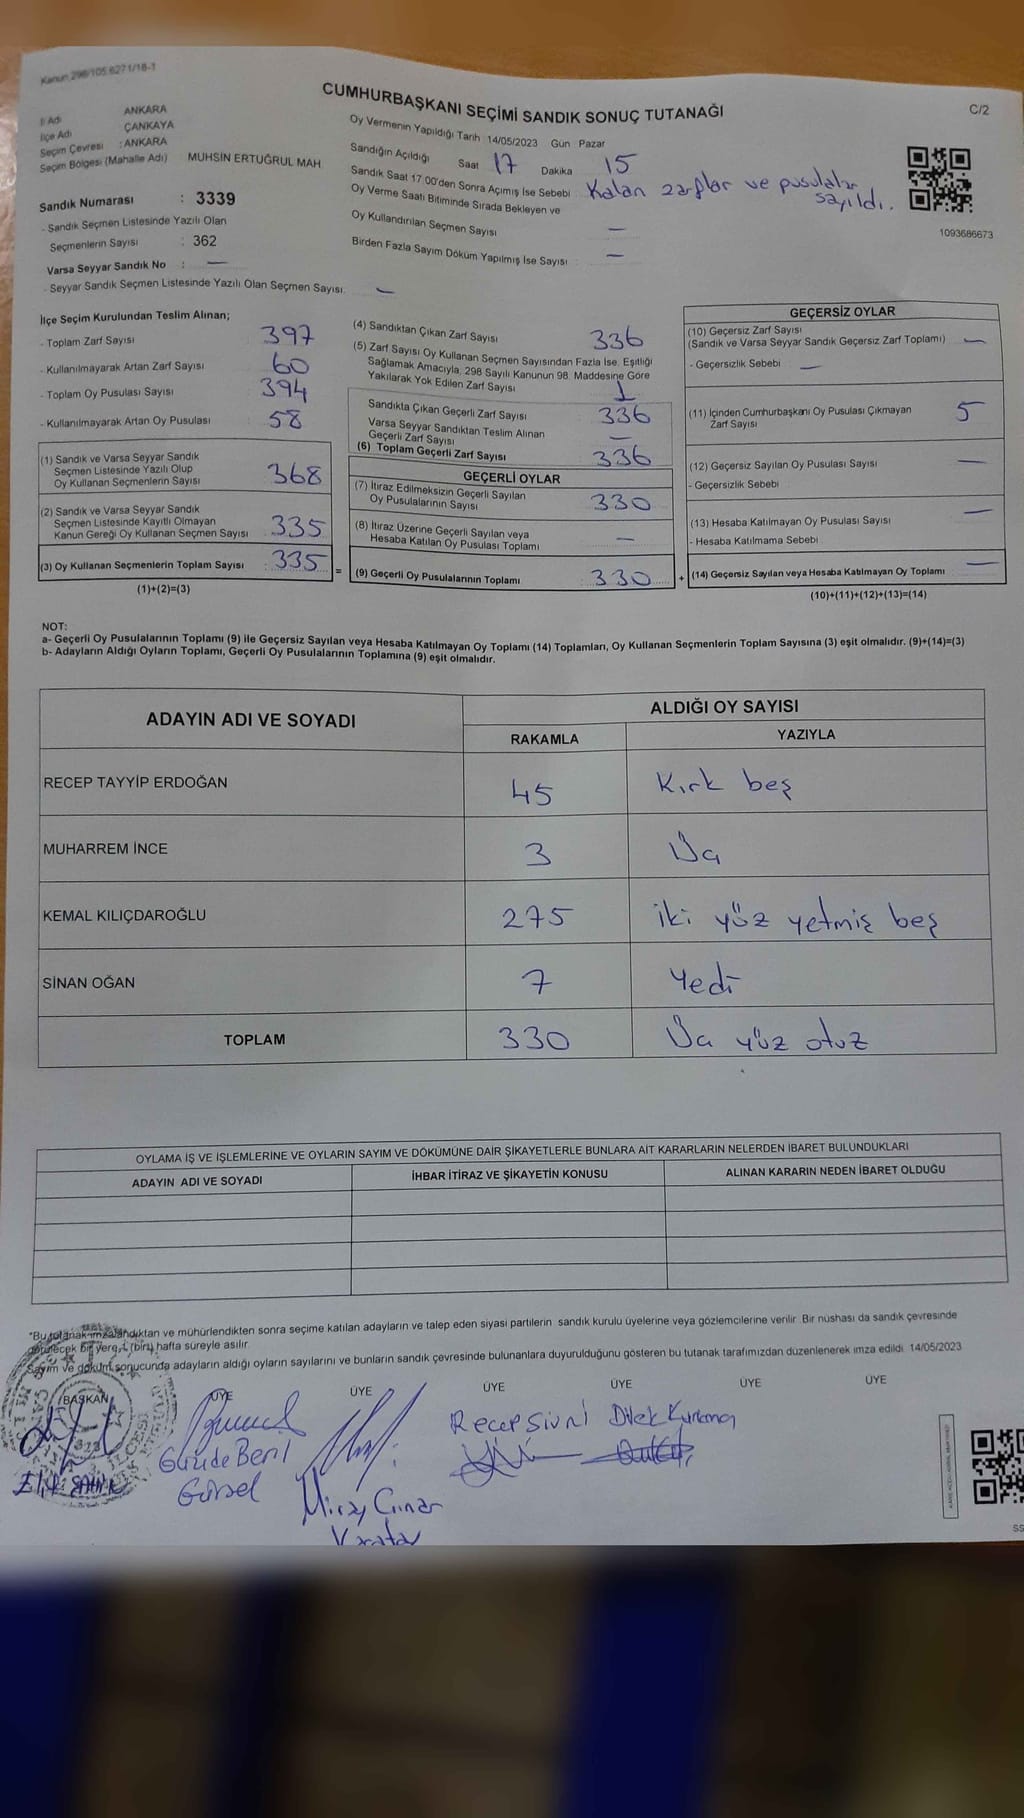 Kanun 298/105.6271/18-1
CUMHURBAŞKANI SEÇİMİ SANDIK SONUÇ TUTANAĞI
C/2
İl Adı ANKARA
İlçe Adı ÇANKAYA
Seçim Çevresi : ANKARA
Seçim Bölgesi (Mahalle Adı) MUHSİN ERTUĞRUL MAH.
Sandık Numarası : 3339
- Sandık Seçmen Listesinde Yazılı Olan
Seçmenlerin Sayısı : 362
Varsa Seyyar Sandık No : —
- Seyyar Sandık Seçmen Listesinde Yazılı Olan Seçmen Sayısı: —
Oy Vermenin Yapıldığı Tarih 14/05/2023 Gün Pazar
Sandığın Açıldığı Saat 17 Dakika 15
Sandık Saat 17:00'den Sonra Açımış İse Sebebi Kalan zarflar ve pusulalar
sayıldı.
Oy Verme Saati Bitiminde Sırada Bekleyen ve
Oy Kullandırılan Seçmen Sayısı —
Birden Fazla Sayım Döküm Yapılmış İse Sayısı : —
1093686673
İlçe Seçim Kurulundan Teslim Alınan;
- Toplam Zarf Sayısı : 397
- Kullanılmayarak Artan Zarf Sayısı : 60
- Toplam Oy Pusulası Sayısı : 394
- Kullanılmayarak Artan Oy Pusulası : 58
(1) Sandık ve Varsa Seyyar Sandık
Seçmen Listesinde Yazılı Olup
Oy Kullanan Seçmenlerin Sayısı : 368
(2) Sandık ve Varsa Seyyar Sandık
Seçmen Listesinde Kayıtlı Olmayan
Kanun Gereği Oy Kullanan Seçmen Sayısı : 335
(3) Oy Kullanan Seçmenlerin Toplam Sayısı : 335 =
(1)+(2)=(3)
(4) Sandıktan Çıkan Zarf Sayısı 336
(5) Zarf Sayısı Oy Kullanan Seçmen Sayısından Fazla İse, Eşitliği
Sağlamak Amacıyla, 298 Sayılı Kanunun 98. Maddesine Göre
Yakılarak Yok Edilen Zarf Sayısı 1
Sandıkta Çıkan Geçerli Zarf Sayısı : 336
Varsa Seyyar Sandıktan Teslim Alınan
Geçerli Zarf Sayısı : —
(6) Toplam Geçerli Zarf Sayısı : 336
GEÇERLİ OYLAR
(7) İtiraz Edilmeksizin Geçerli Sayılan
Oy Pusulalarının Sayısı : 330
(8) İtiraz Üzerine Geçerli Sayılan veya
Hesaba Katılan Oy Pusulası Toplamı : —
(9) Geçerli Oy Pusulalarının Toplamı : 330 +
GEÇERSİZ OYLAR
(10) Geçersiz Zarf Sayısı
(Sandık ve Varsa Seyyar Sandık Geçersiz Zarf Toplamı) : —
- Geçersizlik Sebebi : —
(11) İçinden Cumhurbaşkanı Oy Pusulası Çıkmayan
Zarf Sayısı : 5
(12) Geçersiz Sayılan Oy Pusulası Sayısı : —
- Geçersizlik Sebebi :
(13) Hesaba Katılmayan Oy Pusulası Sayısı : —
- Hesaba Katılmama Sebebi :
(14) Geçersiz Sayılan veya Hesaba Katılmayan Oy Toplamı : —
(10)+(11)+(12)+(13)=(14)
NOT:
a- Geçerli Oy Pusulalarının Toplamı (9) ile Geçersiz Sayılan veya Hesaba Katılmayan Oy Toplamı (14) Toplamları, Oy Kullanan Seçmenlerin Toplam Sayısına (3) eşit olmalıdır. (9)+(14)=(3)
b- Adayların Aldığı Oyların Toplamı, Geçerli Oy Pusulalarının Toplamına (9) eşit olmalıdır.
ADAYIN ADI VE SOYADI ALDIĞI OY SAYISI
RAKAMLA YAZIYLA
RECEP TAYYİP ERDOĞAN 45 Kırk beş
MUHARREM İNCE 3 Üç
KEMAL KILIÇDAROĞLU 275 iki yüz yetmiş beş
SİNAN OĞAN 7 Yedi
TOPLAM 330 Üç yüz otuz
OYLAMA İŞ VE İŞLEMLERİNE VE OYLARIN SAYIM VE DÖKÜMÜNE DAİR ŞİKAYETLERLE BUNLARA AİT KARARLARIN NELERDEN İBARET BULUNDUKLARI
ADAYIN ADI VE SOYADI İHBAR İTİRAZ VE ŞİKAYETİN KONUSU ALINAN KARARIN NEDEN İBARET OLDUĞU
*Bu tutanak imzalandıktan ve mühürlendikten sonra seçime katılan adayların ve talep eden siyasi partilerin sandık kurulu üyelerine veya gözlemcilerine verilir. Bir nüshası da sandık çevresinde
görülecek bir yere, 1 (bir) hafta süreyle asılır.
Sayım ve döküm sonucunda adayların aldığı oyların sayılarını ve bunların sandık çevresinde bulunanlara duyurulduğunu gösteren bu tutanak tarafımızdan düzenlenerek imza edildi. 14/05/2023
BAŞKAN ÜYE ÜYE ÜYE ÜYE ÜYE ÜYE
Güzide Beril
Gürsel
Miray Çınar
Karatay
Recep Sivri
Dilek Kurtama